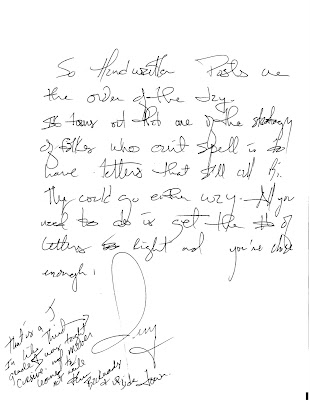 So Handwritten Posts are
the order of the day.
It turns out that one of the strategy
of folks who can't spell is to
have letters that still all fi.
They could go either way. All you
need to do is get the # of
letters right and you're close
enough.
Jerry
That's a J
In like Third
grade I was taught
cursive.
going to
at the & upside down.